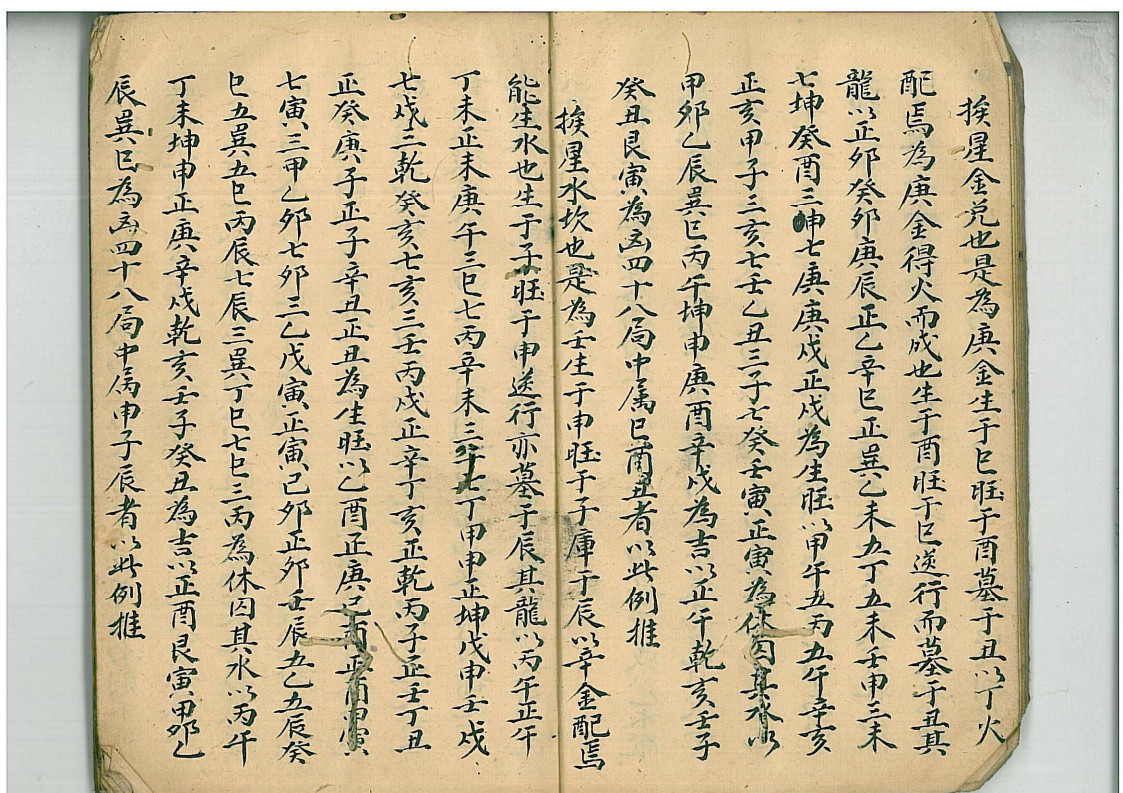 挨星金兑也是為庚金生于巳旺于酉墓于丑以丁火
配焉為庚金得火而成也生于酉旺于巳逆行而墓于丑其
龍以正卯癸卯庚辰正乙辛巳正巽乙未五丁五未壬申三未
七坤癸酉三坤七庚庚戌正戌為生旺以甲午五丙五午辛亥
正亥甲子三亥七壬乙丑三子七癸壬寅正寅為休囚其水以
甲卯乙辰巽巳丙午坤申庚酉辛戌為吉以正午乾亥壬子
癸丑艮寅為凶四十八局中属巳酉丑者以此例推
挨星水坎也是為壬生于申旺于子庫于辰以辛金配焉
能生水也生于子旺于申逆行亦墓于辰其龍以丙午正午
丁未正未庚午三巳七丙辛未三午七丁甲申正坤戊申壬戌
七戌三乾癸亥七亥三壬丙戌正辛丁亥正乾丙子正壬丁丑
正癸庚子正子辛丑正丑為生旺以乙酉正庚己酉正酉甲寅
七寅三甲乙卯七卯三乙戊寅正寅己卯正卯壬辰五乙五辰癸
巳五巽五巳丙辰七辰三巽丁巳七巳三丙為休囚其水以丙午
丁未坤申正庚辛戌乾亥壬子癸丑為吉以正酉艮寅甲卯乙
辰巽巳為凶四十八局中属申子辰者以此例推